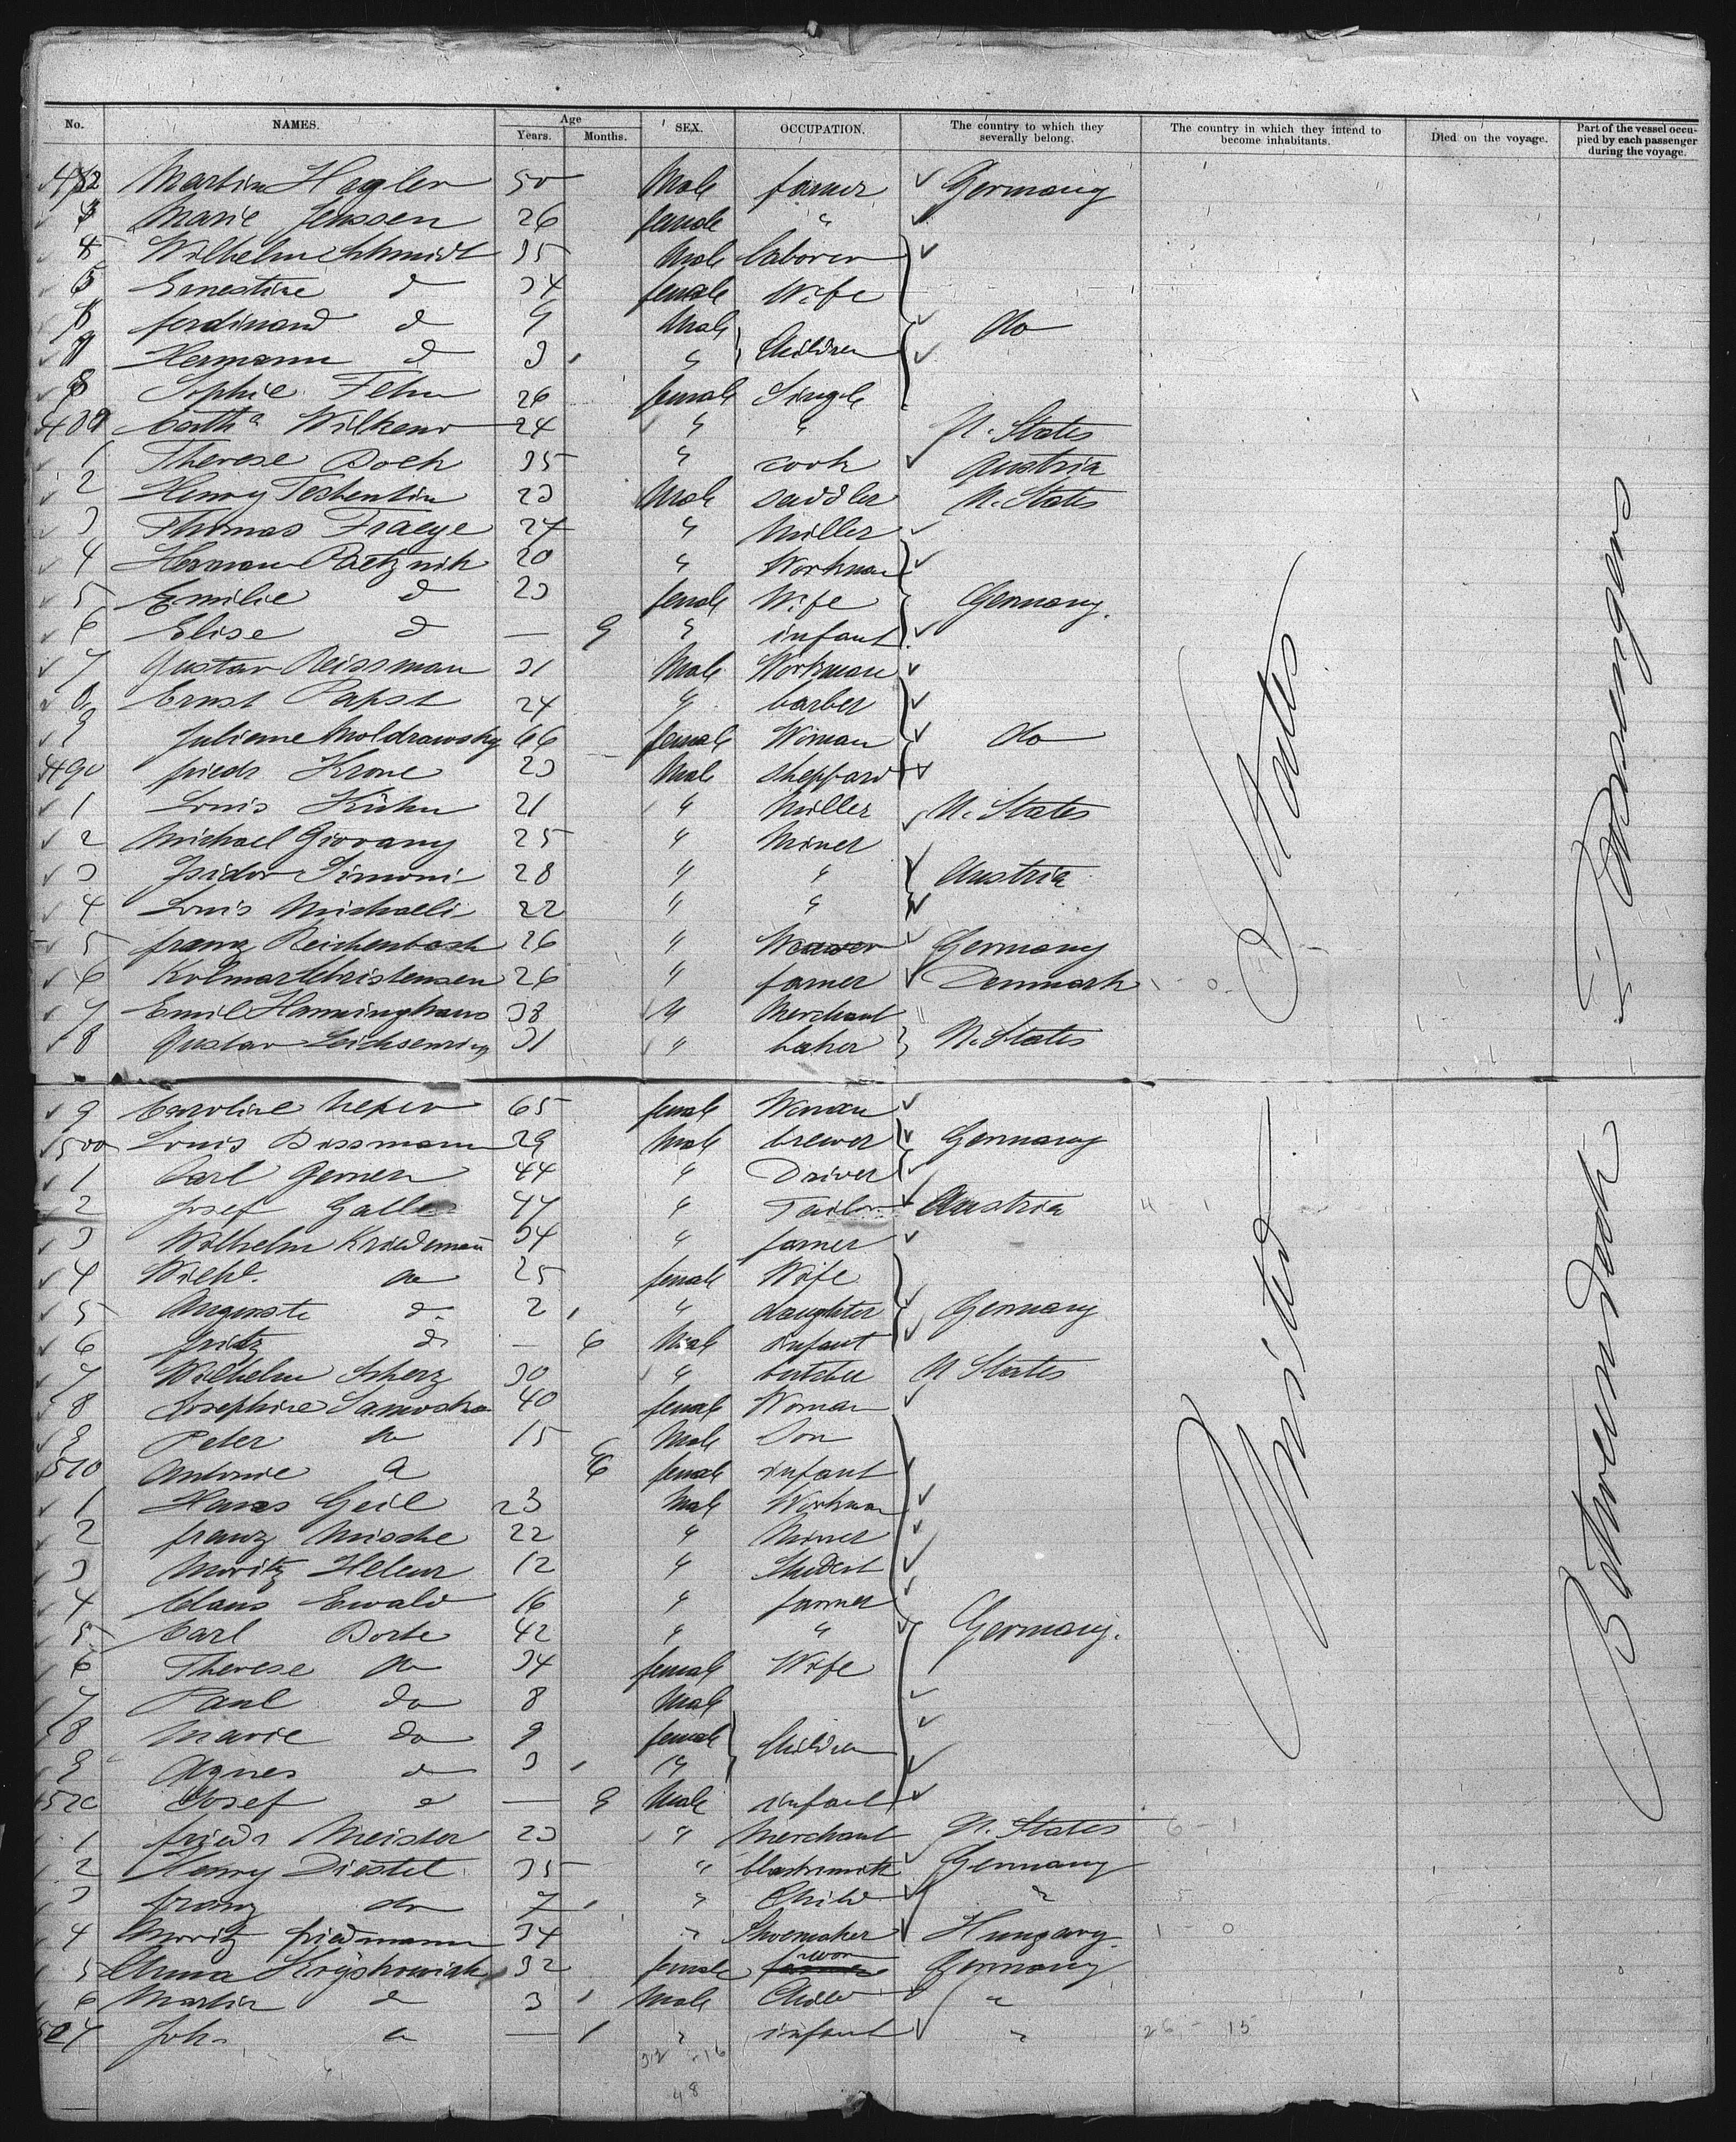 No. NAMES. Age Years. Months. SEX. OCCUPATION. The country to which they severally belong. The country in which they intend to become inhabitants. Died on the voyage. Part of the vessel occupied by each passenger during the voyage.
Martin Hagler 50 Male farmer Germany
Marie Jenssen 26 female "
Wilhelm Schmidt 35 Male laborer
Ernestine d 34 female Wife
ferdinand d 9 Male
Hermann d 3 " Children do
8 Sophie Fehn 26 female Single
Cath a Wilkens 24 " " U. States
1 Therese Boeh 35 " cook Austria
2 Henry Teshentin 23 Male saddler U. States
3 Thomas Fraeye 24 " Miller
4 Herman Rietznik 20 " Workman
5 Emilie d 23 female Wife Germany.
6 Elise d — 9 " infant
7 Gustav Reissman 31 Male Workman
8 Ernst Papst 24 " barber
9 Julienne Moldrawsky 66 female Woman do
490 friedr Krone 23 Male Sheppard
1 Louis Kühn 21 " Miller U. States
2 Michael Giovany 25 " Miner
3 Isidor Simoni 28 " " Austria
4 Louis Michaeli 22 " "
5 franz Reichenbach 26 " Weaver Germany
6 Kolmar Christensen 26 " farmer Denmark
7 Emil Hanninghaus 38 " Merchant
8 Gustav Leichsenring 31 " baker U. States
9 Caroline 65 female Woman
500 Louis Dissmann 29 Male brewer Germany
1 Carl Gerner 44 " Driver
2 Josef Galle 47 " Tailor Austria
3 Wilhelm Kriedemann 34 " farmer
4 Wilhe. do 25 female Wife
5 Auguste d. 2 " daughter Germany
6 fritz d — 6 Male infant
7 Wilhelm Scherz 30 " butcher U States
8 Josephine Samoska 40 female Woman
9 Peter do 15 Male Son
510 Antonie d 6 female infant
1 Hans Geil 23 Male Workman
2 franz Nische 22 " Miner
3 Moritz Heleur 12 " Student
4 Claus Ewald 16 " farmer
5 Carl Borte 42 " " Germany.
6 Therese do 34 female Wife
7 Paul do 8 Male
8 Marie do 9 female Children
9 Agnes d 3 "
520 Josef d — 9 Male infant
1 friedr Meister 23 " Merchant U. States 6 - 1
2 Henry Diestel 35 " blacksmith Germany
3 franz do 7 " Child "
4 Moritz friedmann 34 " Shoemaker Hungary. 1 - 0
5 Anna Kryskowiak 32 female Germany
6 Martin d 3 Male Child "
527 Joh. d — " infant " 26 - 15
32 - 16
48
United States
Between deck Passengers